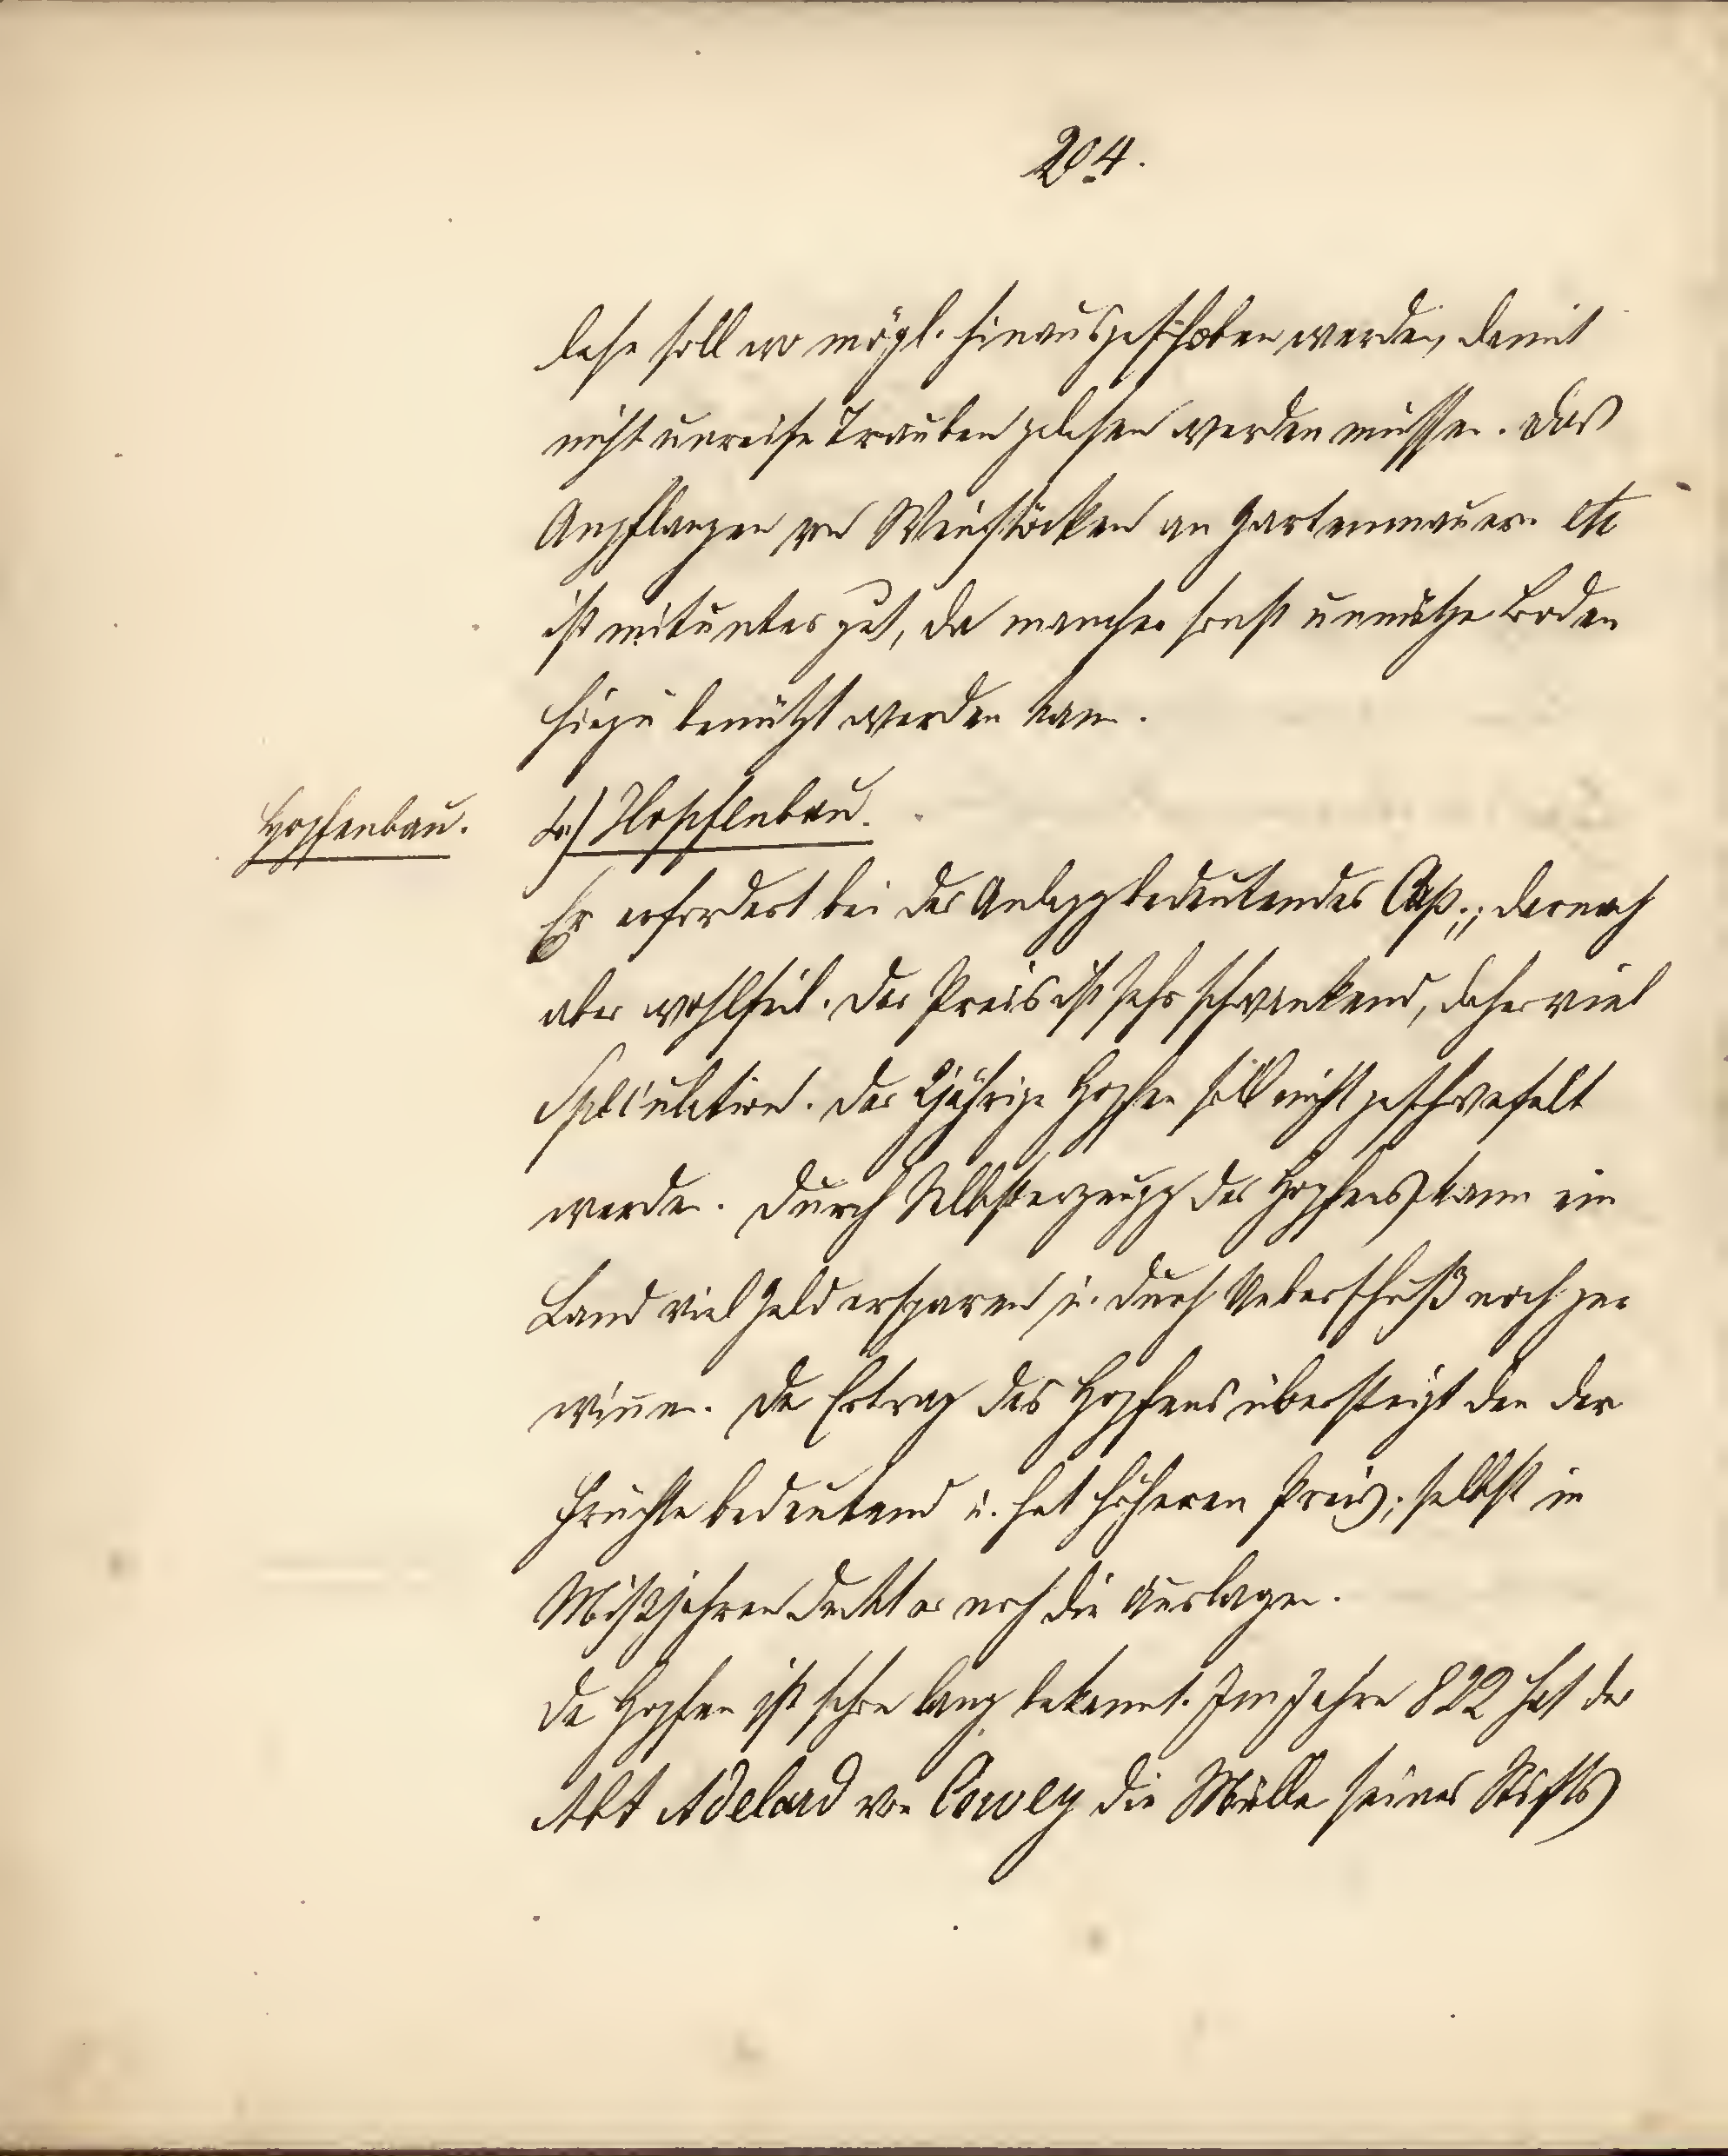 204.
lese soll wo mögl. hinausgeschoben werden, damit
nicht unreife Trauben gelesen werden müssen. Das
Anpflanzen von Weinstöcken an Gartenmauern etc
ist mitunter gut, da mancher sonst unnütze Boden
hiezu benützt werden kann.
Hopfenbau.
Hopfenbau.
Er erfordert bei der Anlegg bedeutendes Cap.; darnach
aber wohlfeil. Der Preis ist sehr schwankend, daher viel
Speculation. Der 2jährige Hopfen soll nicht geschwefelt
werden. Durch Selbsterzeugg des Hopfens kann ein
Land viel Geld ersparen u. durch Ueberschuß noch ge-
winnen. Der Ertrag des Hopfens übersteigt den der
Früchte bedeutend u. hat höheren Preis; selbst in
Mißjahren deckt er noch die Auslagen.
Der Hopfen ist schon lang bekannt. Im Jahre 822 hat der
Abt Adelard von Corvey die Müller seines Stifts